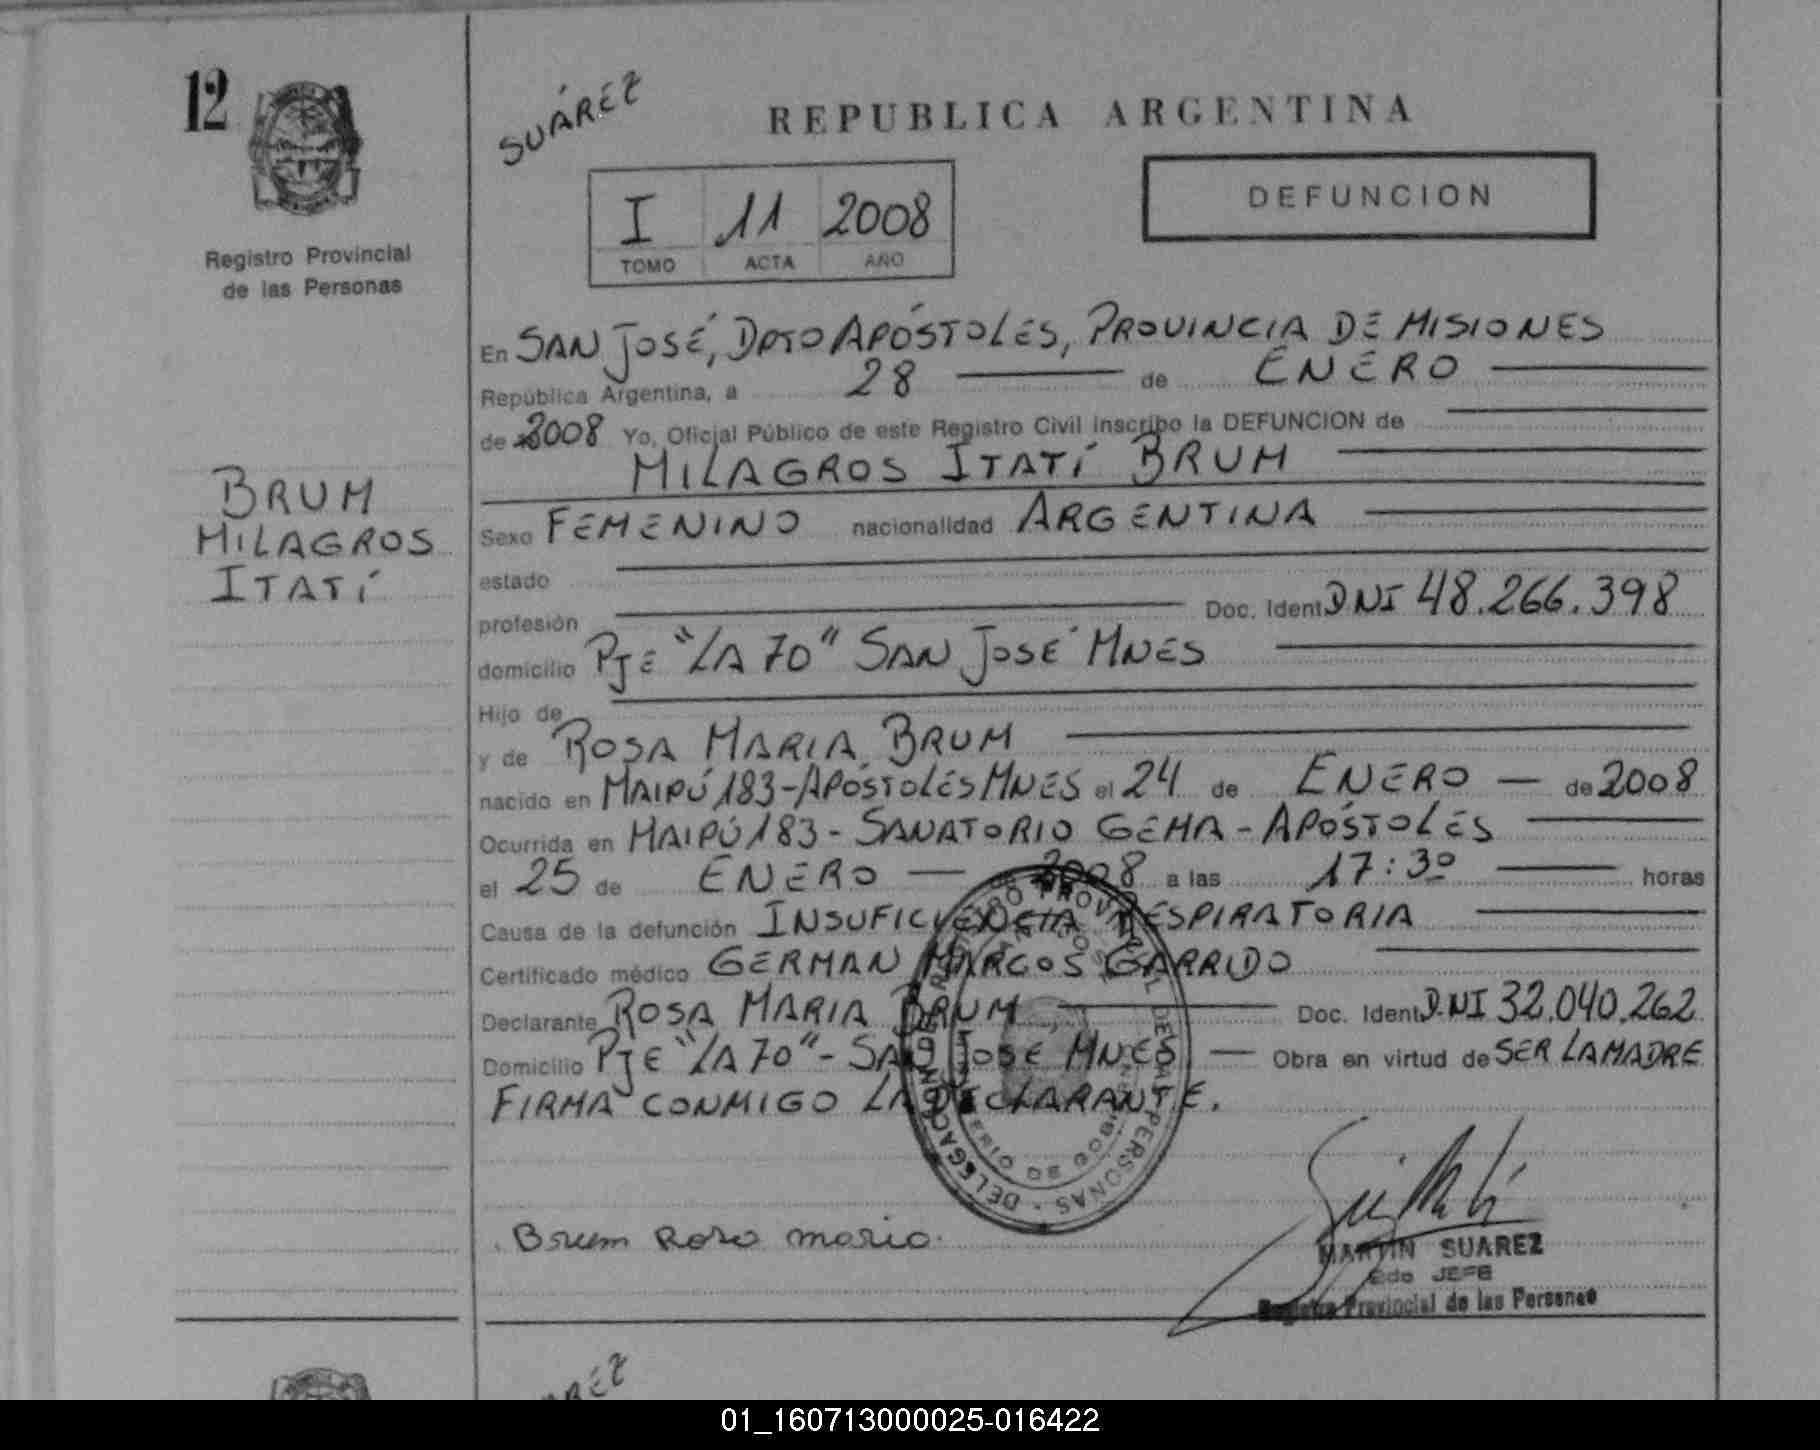 12
SUÁREZ
REPUBLICA ARGENTINA
I 11 2008
TOMO ACTA AÑO
DEFUNCION
Registro Provincial
de las Personas
BRUM
MILAGROS
ITATÍ
En SAN JOSÉ, DPTO APÓSTOLES, PROVINCIA DE MISIONES
República Argentina, a 28 de ENERO
de 2008 Yo, Oficial Público de este Registro Civil inscribo la DEFUNCION de
MILAGROS ITATÍ BRUM
Sexo FEMENINO nacionalidad ARGENTINA
estado
profesión Doc. Ident DNI 48.266.398
domicilio PJE "LA 70" SAN JOSÉ MNES
Hijo de
y de ROSA MARIA BRUM
nacido en MAIPÚ 183-APÓSTOLES MNES el 24 de ENERO de 2008
Ocurrida en MAIPÚ 183 - SANATORIO GEMA - APÓSTOLES
el 25 de ENERO de 2008 a las 17:30 horas
Causa de la defunción INSUFICIENCIA RESPIRATORIA
Certificado médico GERMAN MARCOS GARRIDO
Declarante ROSA MARIA BRUM Doc. Ident DNI 32.040.262
Domicilio PJE "LA 70" - SAN JOSÉ MNES Obra en virtud de SER LA MADRE
FIRMA CONMIGO LA DECLARANTE.
DELEGACION REGISTRO PROVINCIAL DE LAS PERSONAS
Brum Rosa maria.
MARTIN SUAREZ
JEFE
Registro Provincial de las Personas
01_160713000025-016422